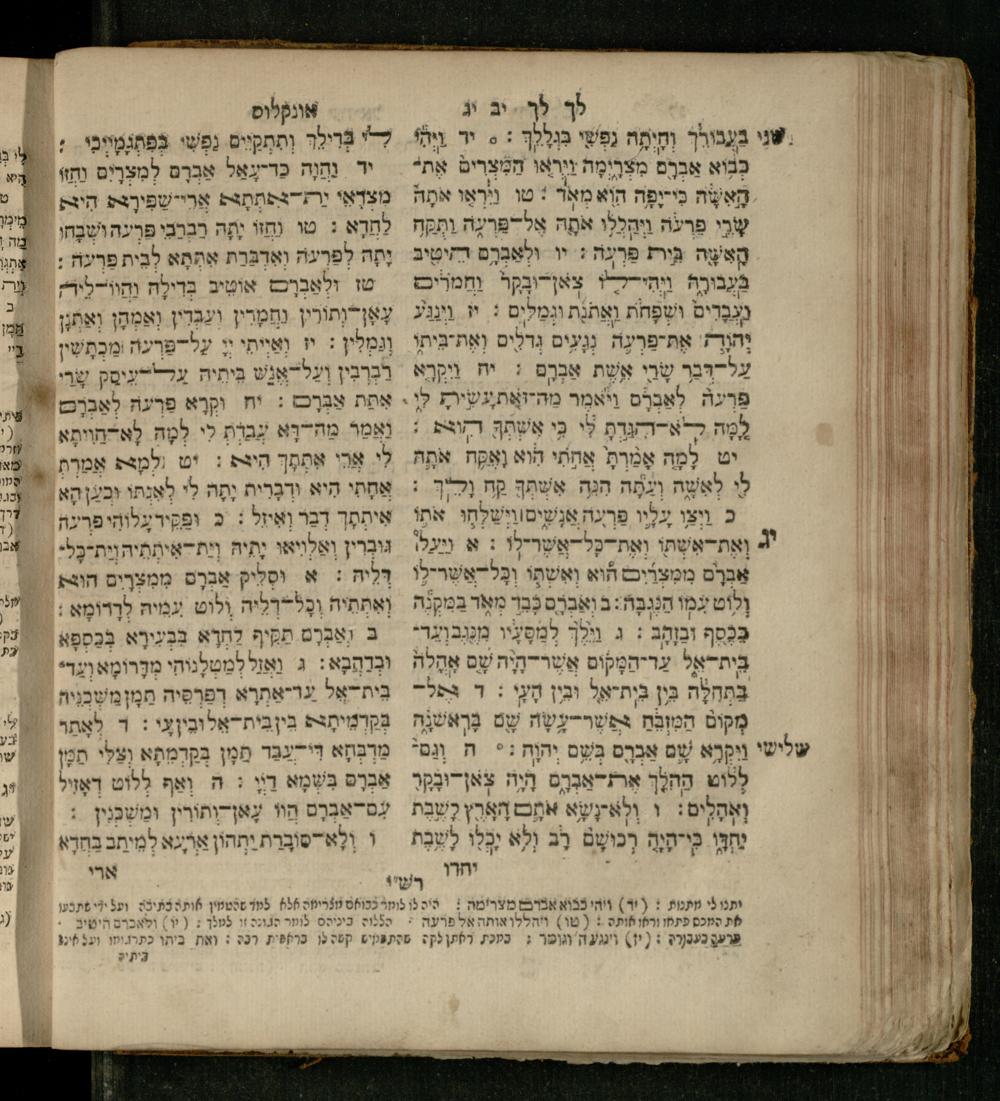 לך לך יב יג
שני בַּעֲבוּרֵךְ וְחָיְתָה נַפְשִׁי בִּגְלָלֵךְ : ○ יד וַיְהִי
כְּבוֹא אַבְרָם מִצְרָיְמָה וַיִּרְאוּ הַמִּצְרִים אֶת־
הָאִשָּׁה כִּי־יָפָה הִוא מְאֹד : טו וַיִּרְאוּ אֹתָהּ
שָׂרֵי פַרְעֹה וַיְהַלְלוּ אֹתָהּ אֶל־פַּרְעֹה וַתֻּקַּח
הָאִשָּׁה בֵּית פַּרְעֹה : יו וּלְאַבְרָם הֵיטִיב
בַּעֲבוּרָהּ וַיְהִי־לוֹ צֹאן־וּבָקָר וַחֲמֹרִים
וַעֲבָדִים וּשְׁפָחֹת וַאֲתֹנֹת וּגְמַלִּים : יז וַיְנַגַּע
יְהוָֹה אֶת־פַּרְעֹה נְגָעִים גְּדֹלִים וְאֶת־בֵּיתוֹ
עַל־דְּבַר שָׂרַי אֵשֶׁת אַבְרָם : יח וַיִּקְרָא
פַרְעֹה לְאַבְרָם וַיֹּאמֶר מַה־זֹּאת עָשִׂיתָ לִּי
לָמָּה לֹא־הִגַּדְתָּ לִּי כִּי אִשְׁתְּךָ הִוא :
יט לָמָה אָמַרְתָּ אֲחֹתִי הִוא וָאֶקַּח אֹתָהּ
לִי לְאִשָּׁה וְעַתָּה הִנֵּה אִשְׁתְּךָ קַח וָלֵךְ :
כ וַיְצַו עָלָיו פַּרְעֹה אֲנָשִׁים וַיְשַׁלְּחוּ אֹתוֹ
יג וְאֶת־אִשְׁתּוֹ וְאֶת־כָּל־אֲשֶׁר־לוֹ : א וַיַּעַל
אַבְרָם מִמִּצְרַיִם הוּא וְאִשְׁתּוֹ וְכָל־אֲשֶׁר־לוֹ
וְלוֹט עִמּוֹ הַנֶּגְבָּה : ב וְאַבְרָם כָּבֵד מְאֹד בַּמִּקְנֶה
בַּכֶּסֶף וּבַזָּהָב : ג וַיֵּלֶךְ לְמַסָּעָיו מִנֶּגֶב וְעַד־
בֵּית־אֵל עַד־הַמָּקוֹם אֲשֶׁר־הָיָה שָׁם אָהֳלֹה
בַּתְּחִלָּה בֵּין בֵּית־אֵל וּבֵין הָעָי : ד אֶל־
מְקוֹם הַמִּזְבֵּחַ אֲשֶׁר־עָשָׂה שָׁם בָּרִאשֹׁנָה
שלישי וַיִּקְרָא שָׁם אַבְרָם בְּשֵׁם יְהוָֹה : ○ ה וְגַם־
לְלוֹט הַהֹלֵךְ אֶת־אַבְרָם הָיָה צֹאן־וּבָקָר
וְאֹהָלִים : ו וְלֹא־נָשָׂא אֹתָם הָאָרֶץ לָשֶׁבֶת
יַחְדָּו כִּי־הָיָה רְכוּשָׁם רָב וְלֹא יָכְלוּ לָשֶׁבֶת
יחדו
אונקלוס
לִי בְּדִילֵךְ וְתִתְקַיֵּים נַפְשִׁי בְּפִתְגָּמַיְיכִי :
יד וַהֲוָה כַּד־עָאל אַבְרָם לְמִצְרָיִם וַחֲזוֹ
מִצְרָאֵי יַת־אִתְּתָא אֲרֵי־שַׁפִּירָא הִיא
לַחֲדָא : טו וַחֲזוֹ יָתָהּ רַבְרְבֵי פַרְעֹה וְשַׁבָּחוּ
יָתָהּ לְפַרְעֹה וְאִדְבָּרַת אִתְּתָא לְבֵית פַּרְעֹה :
טז וּלְאַבְרָם אוֹטֵיב בְּדִילָהּ וַהֲווֹ־לֵיהּ
עָאן־וְתוֹרִין וַחֲמָרִין וְעַבְדִּין וְאַמְהָן וְאַתְנָן
וְגַמְלִין : יז וְאַיְיתִי יְיָ עַל־פַּרְעֹה מַכְתָּשִׁין
רַבְרְבִין וְעַל־אֱנַשׁ בֵּיתֵיהּ עַל־עֵיסַק שָׂרַי
אִתַּת אַבְרָם : יח וּקְרָא פַרְעֹה לְאַבְרָם
וַאֲמַר מַה־דָּא עֲבַדְתְּ לִי לְמָה לָא־חַוִּיתָא
לִי אֲרֵי אִתְּתָךְ הִיא : יט לְמָא אֲמַרְתְּ
אֲחָתִי הִיא וּדְבָרִית יָתָהּ לִי לְאִנְתּוּ וּכְעַן הָא
אִיתְּתָךְ דְּבַר וְאִיזֵל : כ וּפַקֵּיד עֲלוֹהִי פַרְעֹה
גּוּבְרִין וְאַלְוִיאוּ יָתֵיהּ וְיַת־אִיתְּתֵיהּ וְיַת־כָּל־
דִּלֵיהּ : א וּסְלֵיק אַבְרָם מִמִּצְרַיִם הוּא
וְאִתְּתֵיהּ וְכָל־דִּלֵיהּ וְלוֹט עִמֵּיהּ לְדָרוֹמָא :
ב וְאַבְרָם תַּקִּיף לַחֲדָא בִּבְעִירָא בְּכַסְפָּא
וּבְדַהֲבָא : ג וַאֲזַל לְמַטְלָנוֹהִי מִדָּרוֹמָא וְעַד־
בֵּית־אֵל עַד־אַתְרָא דְּפַרְסֵיהּ תַּמָּן מַשְׁכְּנֵיהּ
בְּקַדְמֵיתָא בֵּין בֵּית־אֵל וּבֵין עָי : ד לַאֲתַר
מַדְבְּחָא דִּי־עֲבַד תַּמָּן בְּקַדְמֵתָא וְצַלִּי תַמָּן
אַבְרָם בִּשְׁמָא דַיְיָ : ה וְאַף לְלוֹט דְּאָזֵיל
עִם־אַבְרָם הֲווֹ עָאן־וְתוֹרִין וּמַשְׁכְּנִין :
ו וְלָא־סוֹבָרַת יַתְהוֹן אַרְעָא לְמֵיתַב בַּחֲדָא
ארי
רש״י
יתנו לי מתנות : (יד) ויהי כבוא אברם מצרימה : היה לו לומר כבואם מצרימה אלא למד שהטמין אותה בתיבה ועל ידי שתבעו
את המכס פתחו וראו אותה : (טו) ויהללו אותה אל פרעה הללוה ביניהם לומר הגונה זו למלך : (יו) ולאברם היטיב
פרעה בעבורה : (יז) וינגע ה׳ וגומר : במכת ראתן לקה שהתשמיש קשה לו בראשית רבה : ואת ביתו כתרגומו ועל אינש
ביתיה